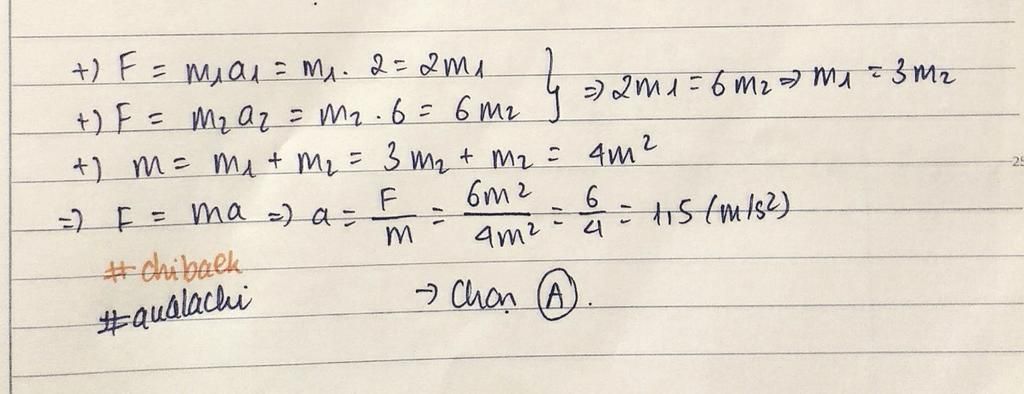 +) F = m₁a₁ = m₁. 2 = 2m₁
+) F = m₂a₂ = m₂ . 6 = 6m₂ } => 2m₁ = 6m₂ => m₁ = 3m₂
+) m = m₁ + m₂ = 3m₂ + m₂ = 4m²
=> F = ma => a = F/m = 6m²/4m² = 6/4 = 1,5 (m/s²)
#chibaek
#aualachi
→ Chọn Ⓐ.